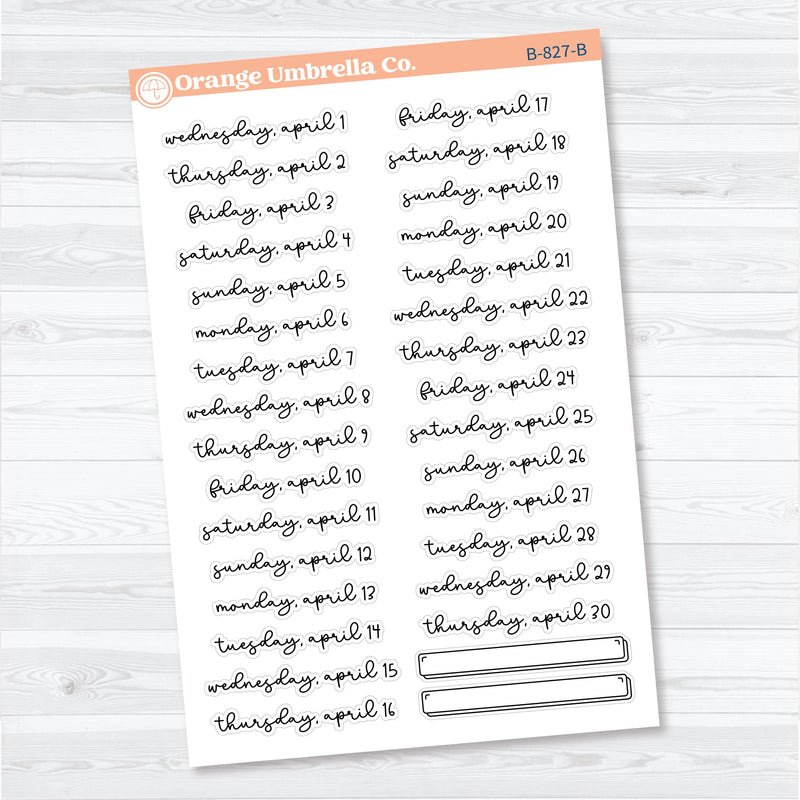 Orange Umbrella Co.
B-827-B
wednesday, april 1
thursday, april 2
friday, april 3
saturday, april 4
sunday, april 5
monday, april 6
tuesday, april 7
wednesday, april 8
thursday, april 9
friday, april 10
saturday, april 11
sunday, april 12
monday, april 13
tuesday, april 14
wednesday, april 15
thursday, april 16
friday, april 17
saturday, april 18
sunday, april 19
monday, april 20
tuesday, april 21
wednesday, april 22
thursday, april 23
friday, april 24
saturday, april 25
sunday, april 26
monday, april 27
tuesday, april 28
wednesday, april 29
thursday, april 30